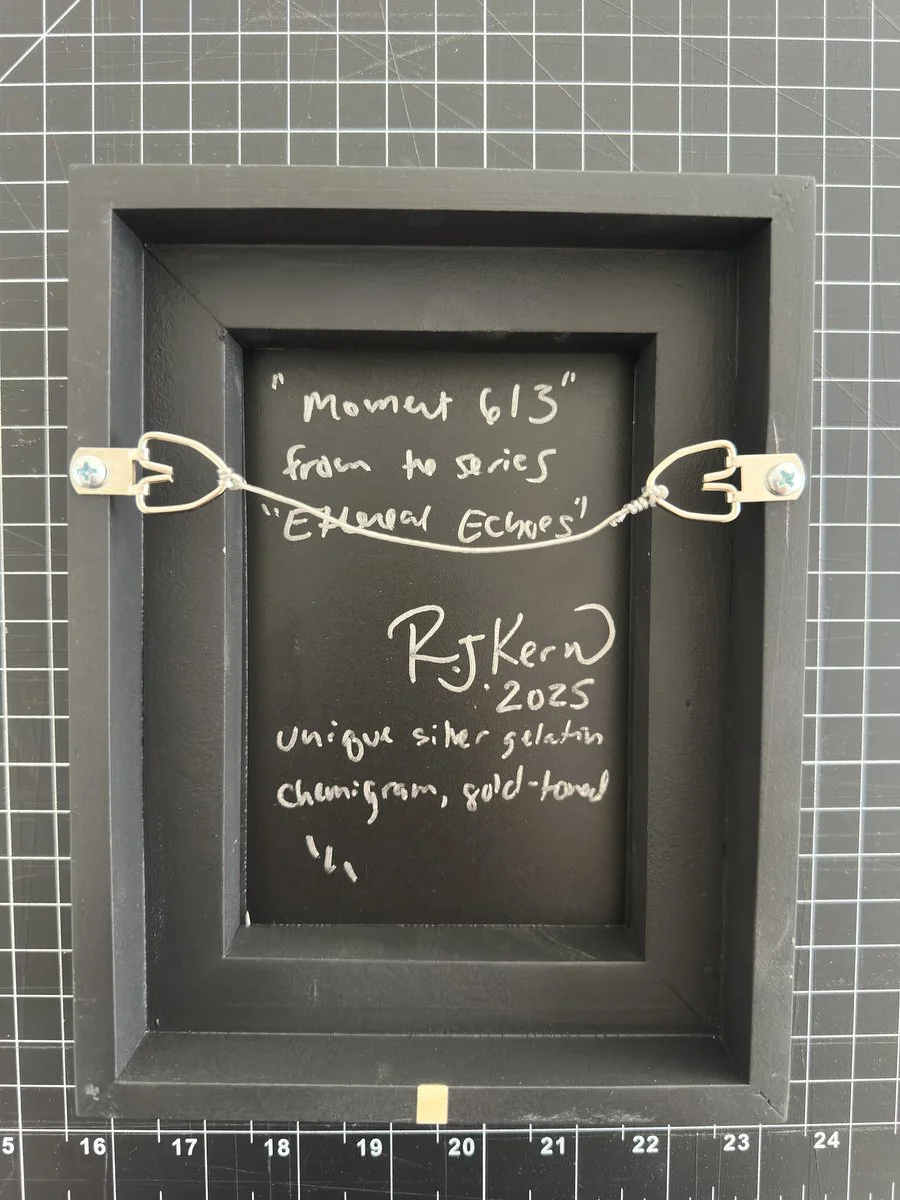 "Moment 613"
from the series
"Ethereal Echoes"
R.J. Kern
2025
unique silver gelatin
chemigram, gold-toned
1/1
5 16 17 18 19 20 21 22 23 24